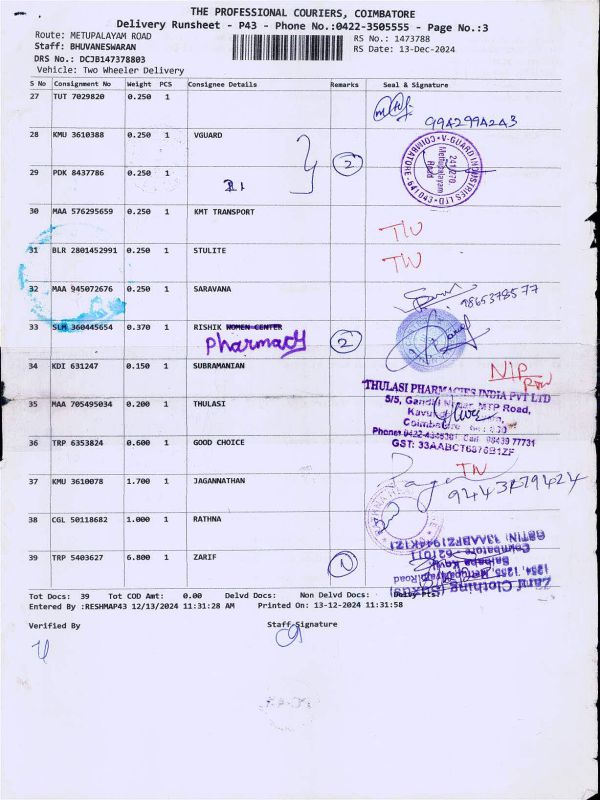 THE PROFESSIONAL COURIERS, COIMBATORE
Delivery Runsheet - P43 - Phone No.:0422-3505555 - Page No.:3
Route: METUPALAYAM ROAD RS No.: 1473788
Staff: BHUVANESWARAN RS Date: 13-Dec-2024
DRS No.: DCJB147378803
Vehicle: Two Wheeler Delivery
S No Consignment No Weight PCS Consignee Details Remarks Seal & Signature
27 TUT 7029820 0.250 1
28 KMU 3610388 0.250 1 VGUARD 2
V-GUARD INDUSTRIES LTD
241/270
Mettupalayam
Road
COIMBATORE - 641 043
29 PDK 8437786 0.250 1
30 MAA 576295659 0.250 1 KMT TRANSPORT
31 BLR 2801452991 0.250 1 STULITE
32 MAA 945072676 0.250 1 SARAVANA
33 SLM 360445654 0.370 1 RISHIK WOMEN CENTER 2
Pharmacy
34 KDI 631247 0.150 1 SUBRAMANIAN
THULASI PHARMACIES INDIA PVT LTD
35 MAA 705495034 0.200 1 THULASI
5/5, MTP Road,
GST: 33AABCT6876B1ZF
36 TRP 6353824 0.600 1 GOOD CHOICE
37 KMU 3610078 1.700 1 JAGANNATHAN
38 CGL 50118682 1.000 1 RATHNA
39 TRP 5403627 6.800 1 ZARIF 1
Tot Docs: 39 Tot COD Amt: 0.00 Delvd Docs: Non Delvd Docs: Delvy Pts:
Entered By :RESHMAP43 12/13/2024 11:31:28 AM Printed On: 13-12-2024 11:31:58
Verified By Staff Signature